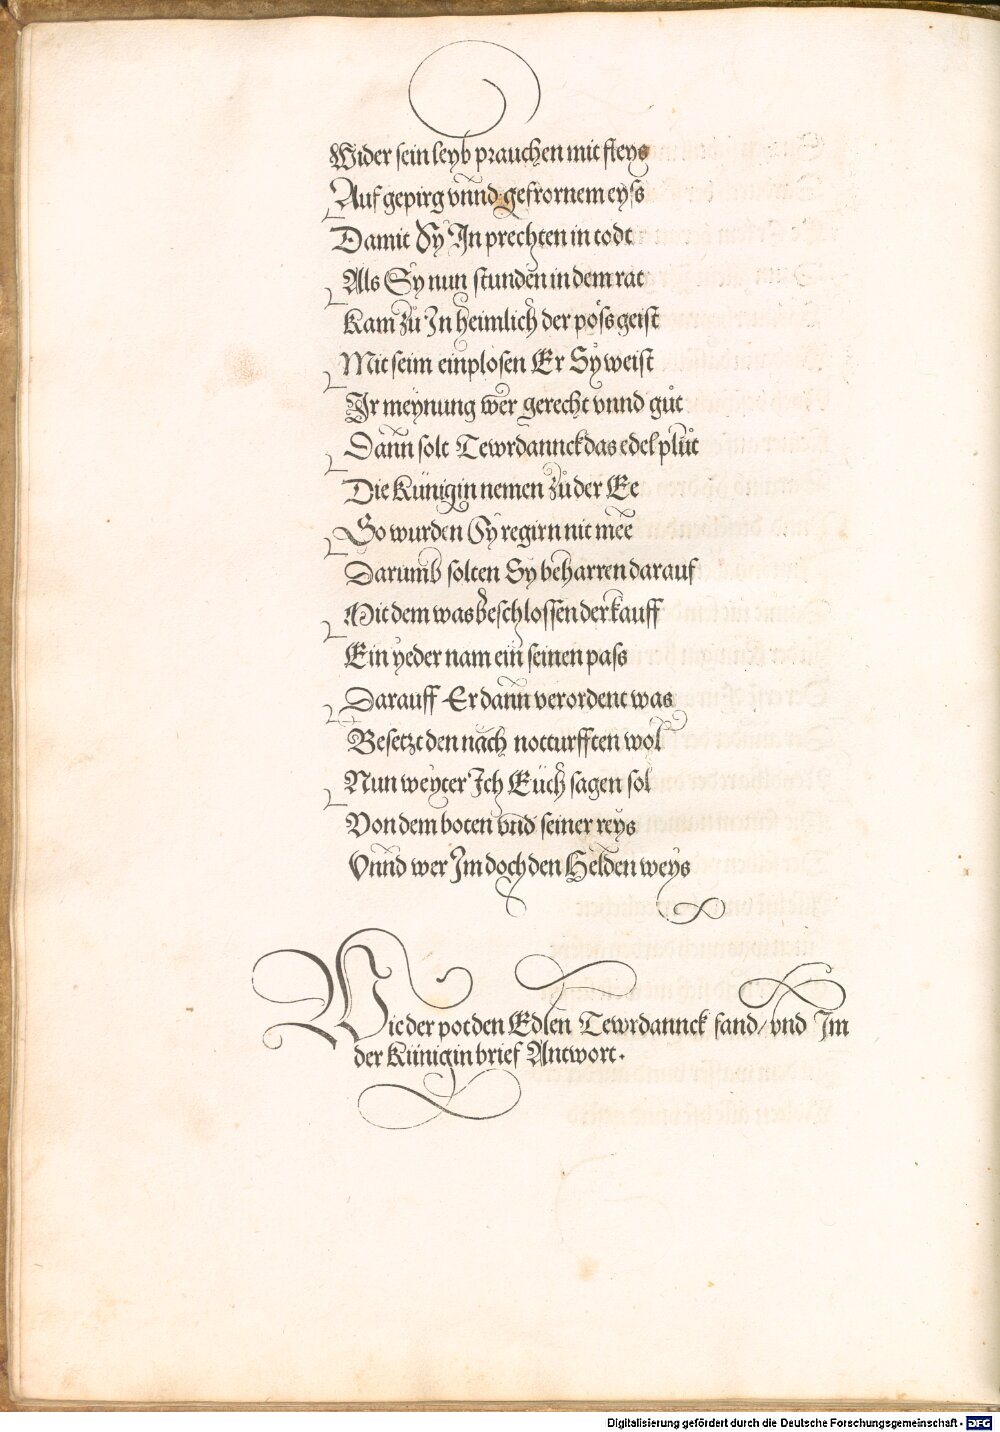 Wider sein leyb prauchen mit fleys
Auf gepirg vnnd gefrornem eyſs
Damit Sy In prechten in todt
Als Sy nun ſtunden in dem rat
Kam zů In heimlich der pöſs geiſt
Mit ſeim einploſen Er Sy weiſt
Ir meynung wer gerecht vnnd gůt
Dann ſolt Tewrdannck das edel plůt
Die Künigin nemen zů der Ee
So wurden Sy regirn nit mee
Darumb ſolten Sy beharren darauf
Mit dem was beſchloſſen der kauff
Ein yeder nam ein ſeinen paſs
Darauff Er dann verordent was
Beſetzt den nach notturfften wol
Nun weyter Ich Eüch ſagen ſol
Von dem boten vnd ſeiner reys
Vnnd wer Im doch den Helden weys
Wie der pot den Edlen Tewrdannck fand/ vnd Im
der Künigin brief Antwort.
Digitalisierung gefördert durch die Deutsche Forschungsgemeinschaft - DFG